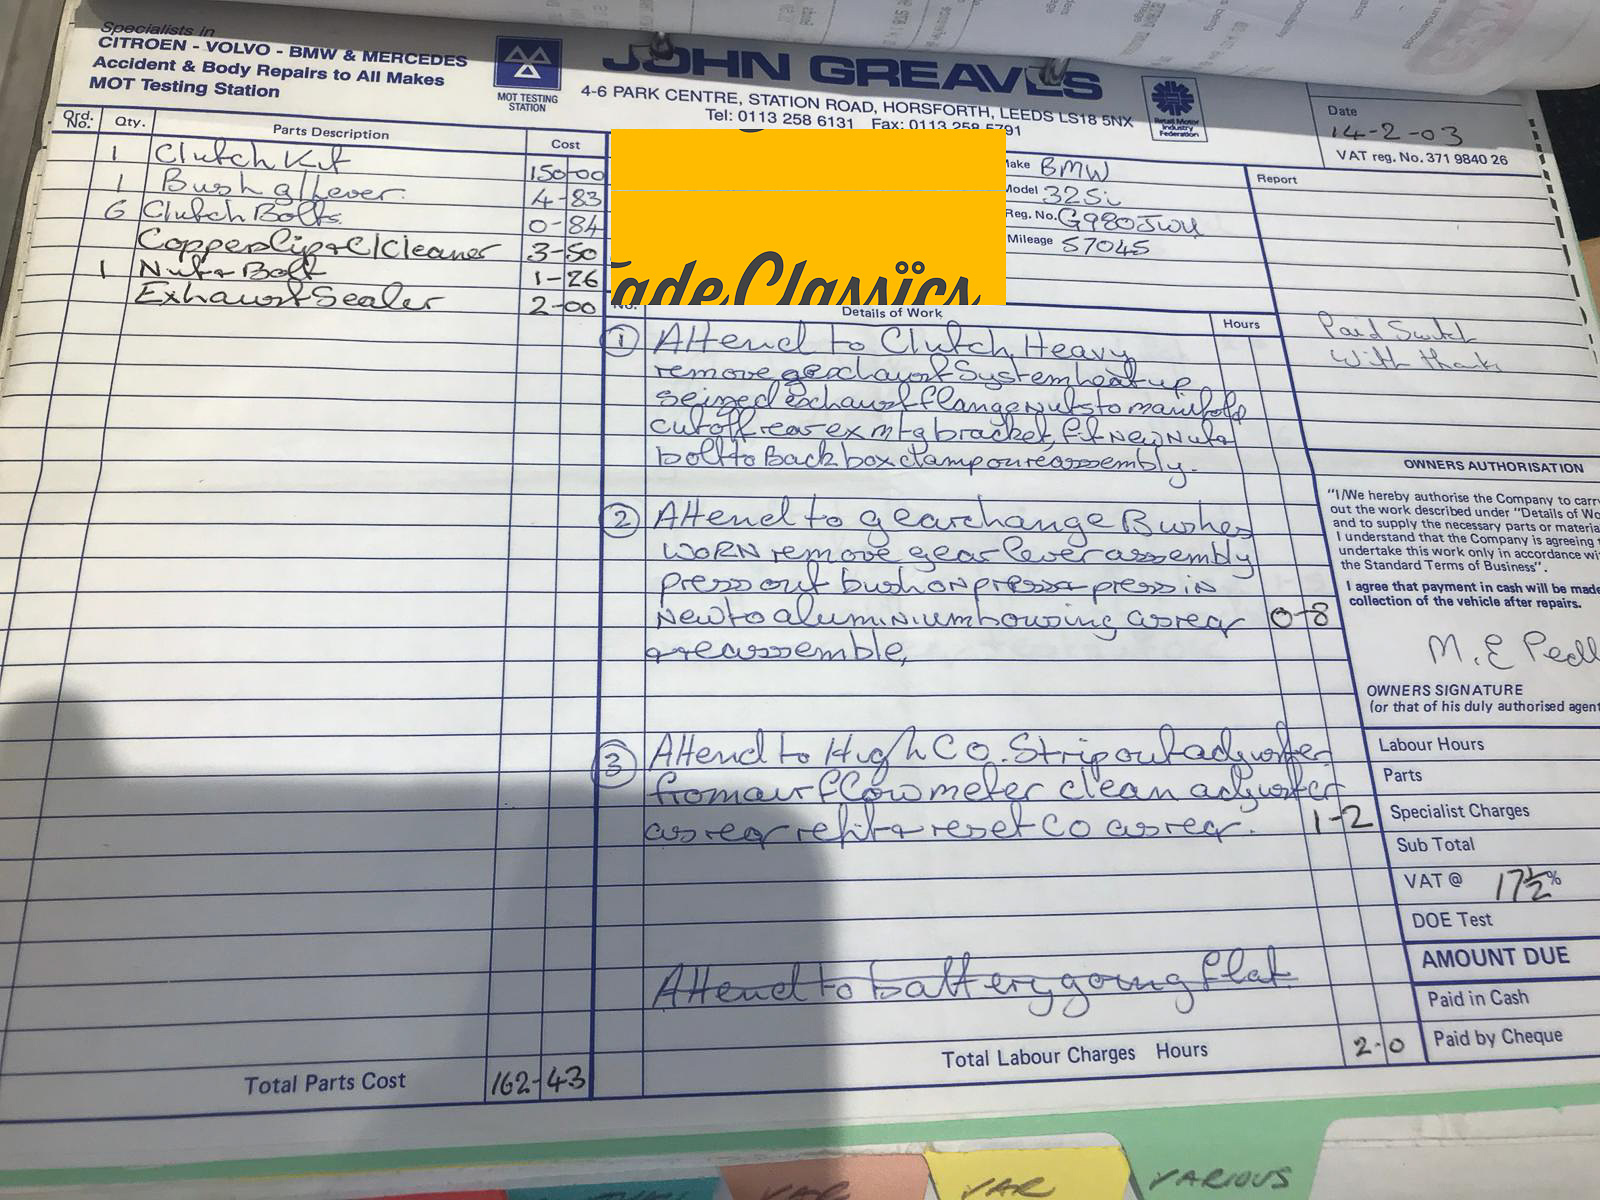 Specialists in
CITROEN - VOLVO - BMW & MERCEDES
Accident & Body Repairs to All Makes
MOT Testing Station
MOT TESTING
STATION
JOHN GREAVES
4-6 PARK CENTRE, STATION ROAD, HORSFORTH, LEEDS LS18 5NX
Tel: 0113 258 6131 Fax: 0113 258 5791
Retail Motor
Industry
Federation
Date
14-2-03
VAT reg. No. 371 9840 26
Ord. No. Qty. Parts Description Cost
1 Clutch Kit 150-00
1 Bush g/Lever. 4-83
6 Clutch Bolts. 0-84
Copperslip + C/Cleaner 3-50
1 Nut + Bolt 1-26
Exhaust Sealer 2-00
Total Parts Cost 162-43
adeClassics
Make BMW
Model 325i
Reg. No. G980JWU
Mileage 57045
Report
Paid Switch
With thanks
No. Details of Work Hours
1 Attend to Clutch, Heavy
remove exhaust System heat up
seized exhaust flange nuts to manifold
cut off rear ex mtg bracket, fit New Nut +
bolt to Back box clamp on reassembly.
2 Attend to gearchange Bushes
WORN remove gear lever assembly
press out bush on press + press in
New to aluminium housing as req 0-8
+ reassemble,
3 Attend to High CO. Strip out adjuster
from air flow meter clean adjuster
as req refit + reset CO as req. 1-2
Attend to battery going flat
Total Labour Charges Hours 2-0
OWNERS AUTHORISATION
"I/We hereby authorise the Company to carry
out the work described under "Details of Wo
and to supply the necessary parts or materia
I understand that the Company is agreeing t
undertake this work only in accordance wi
the Standard Terms of Business".
I agree that payment in cash will be made
collection of the vehicle after repairs.
M. E Pedl
OWNERS SIGNATURE
(or that of his duly authorised agent
Labour Hours
Parts
Specialist Charges
Sub Total
VAT @ 17½%
DOE Test
AMOUNT DUE
Paid in Cash
Paid by Cheque
VAR
VAR
VARIOUS